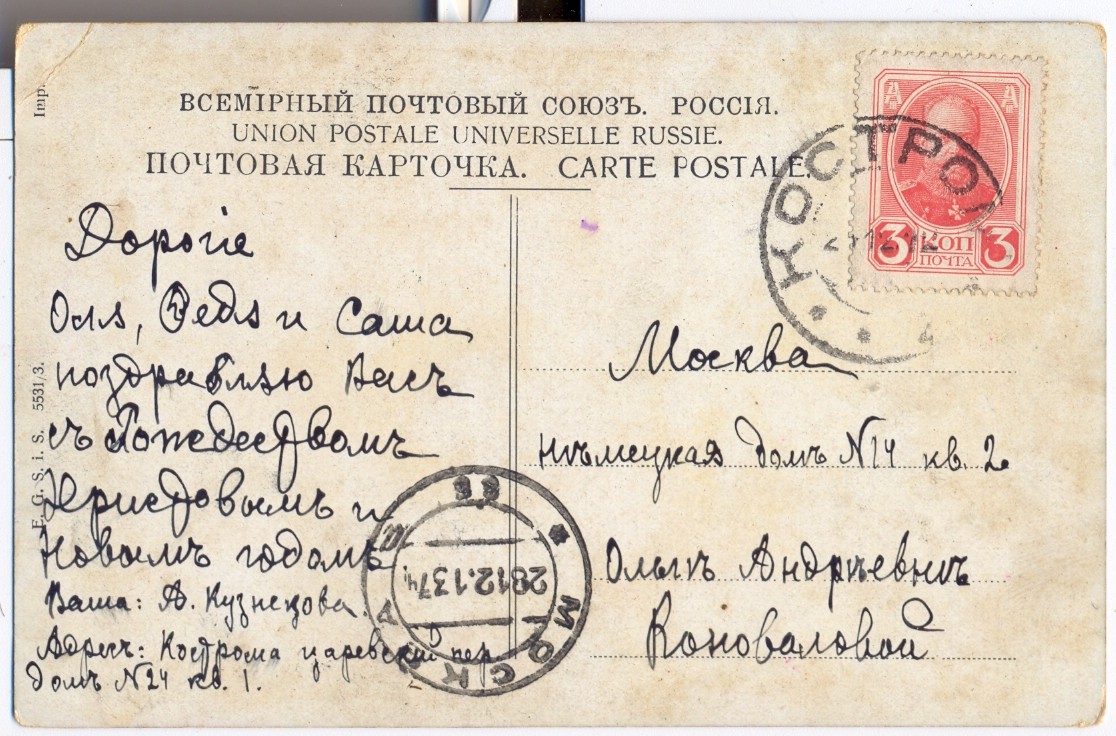 Imp.
ВСЕМІРНЫЙ ПОЧТОВЫЙ СОЮЗЪ. РОССІЯ.
UNION POSTALE UNIVERSELLE RUSSIE.
ПОЧТОВАЯ КАРТОЧКА. CARTE POSTALE.
Дорогіе
Оля, Ѳедя и Саша
поздравляю Васъ
съ Рождествомъ
Христовымъ и
Новымъ годомъ
Ваша: А. Кузнецова.
Адресъ: Кострома царевскій пер.
домъ №24 кв. 1.
E. G. S. i. S. 5531/3.
КОСТРО
3 КОП 3
ПОЧТА
Москва
нѣмецкая домъ №14 кв. 2
Ольгѣ Андрѣевнѣ
Коноваловой
МОСКВА
28.12.13